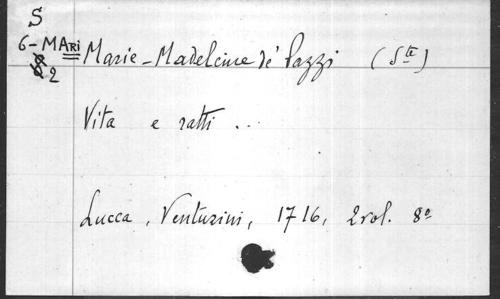 S
6-MARI Marie-Madeleine de' Pazzi (Ste)
2
Vita e ratti ...
Lucca, Venturini, 1716, 2 vol. 8º